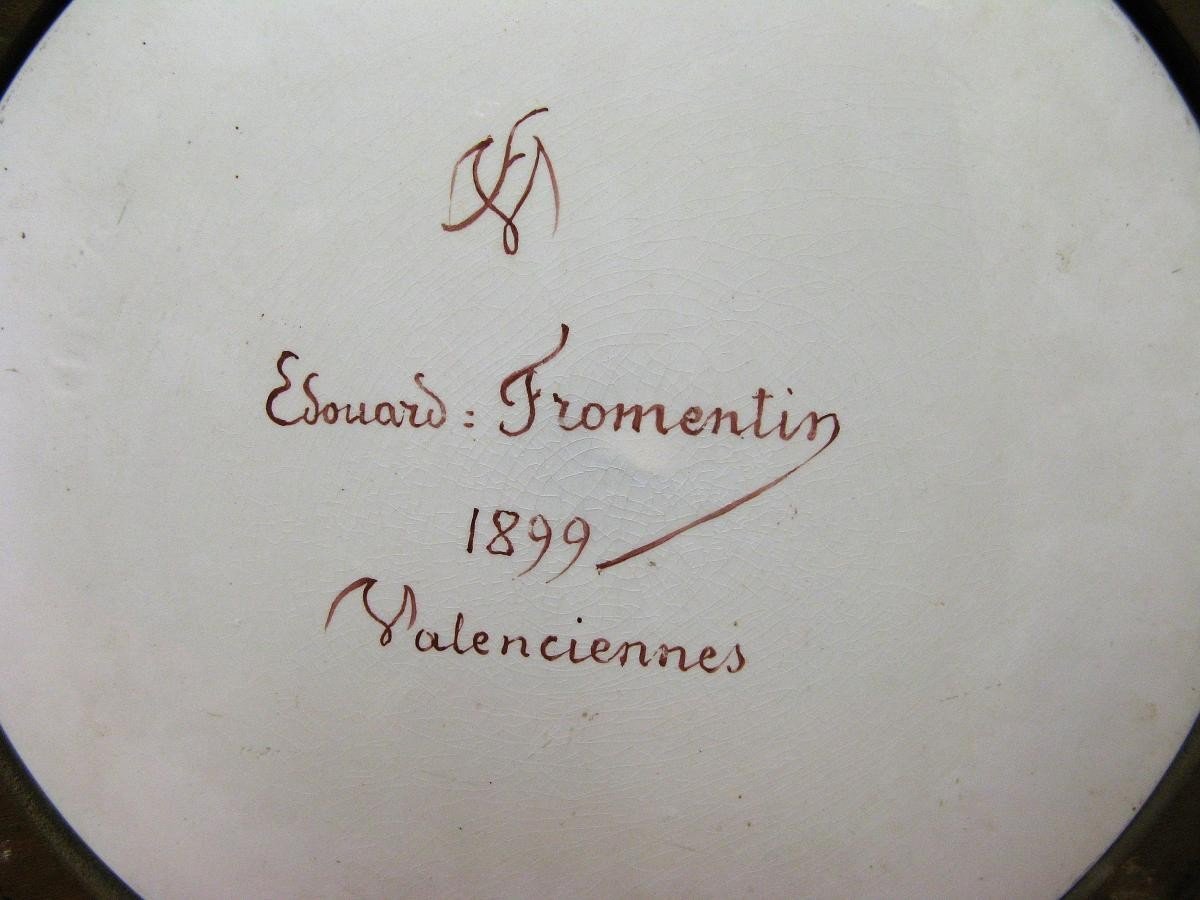 Edouard : Fromentin
1899
Valenciennes